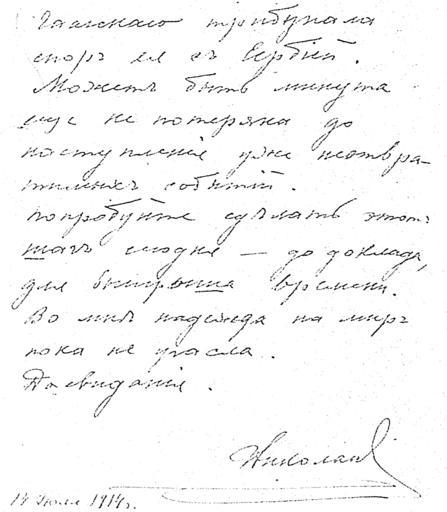 Гаагскаго трибунала
споръ ея съ Сербіей.
Можетъ быть минута
еще не потеряна до
наступленія уже неотвра-
тимыхъ событій.
Попробуйте сдѣлать этотъ
шагъ сегодня — до доклада,
для выигрыша времени.
Во мнѣ надежда на миръ
пока не угасла.
До свиданія.
Николай
14 Іюля 1914 г.